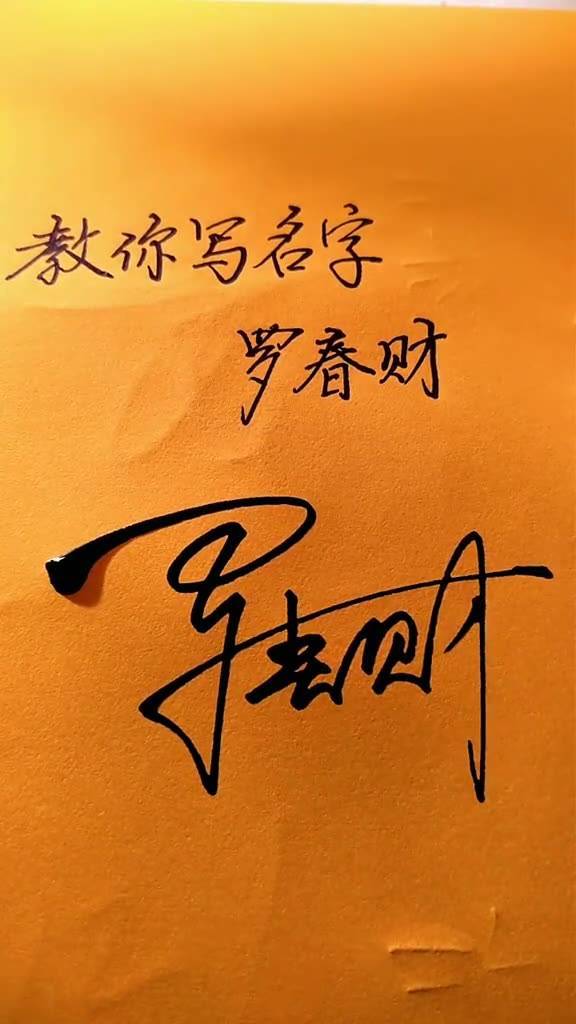 教你写名字
罗春财
罗春财